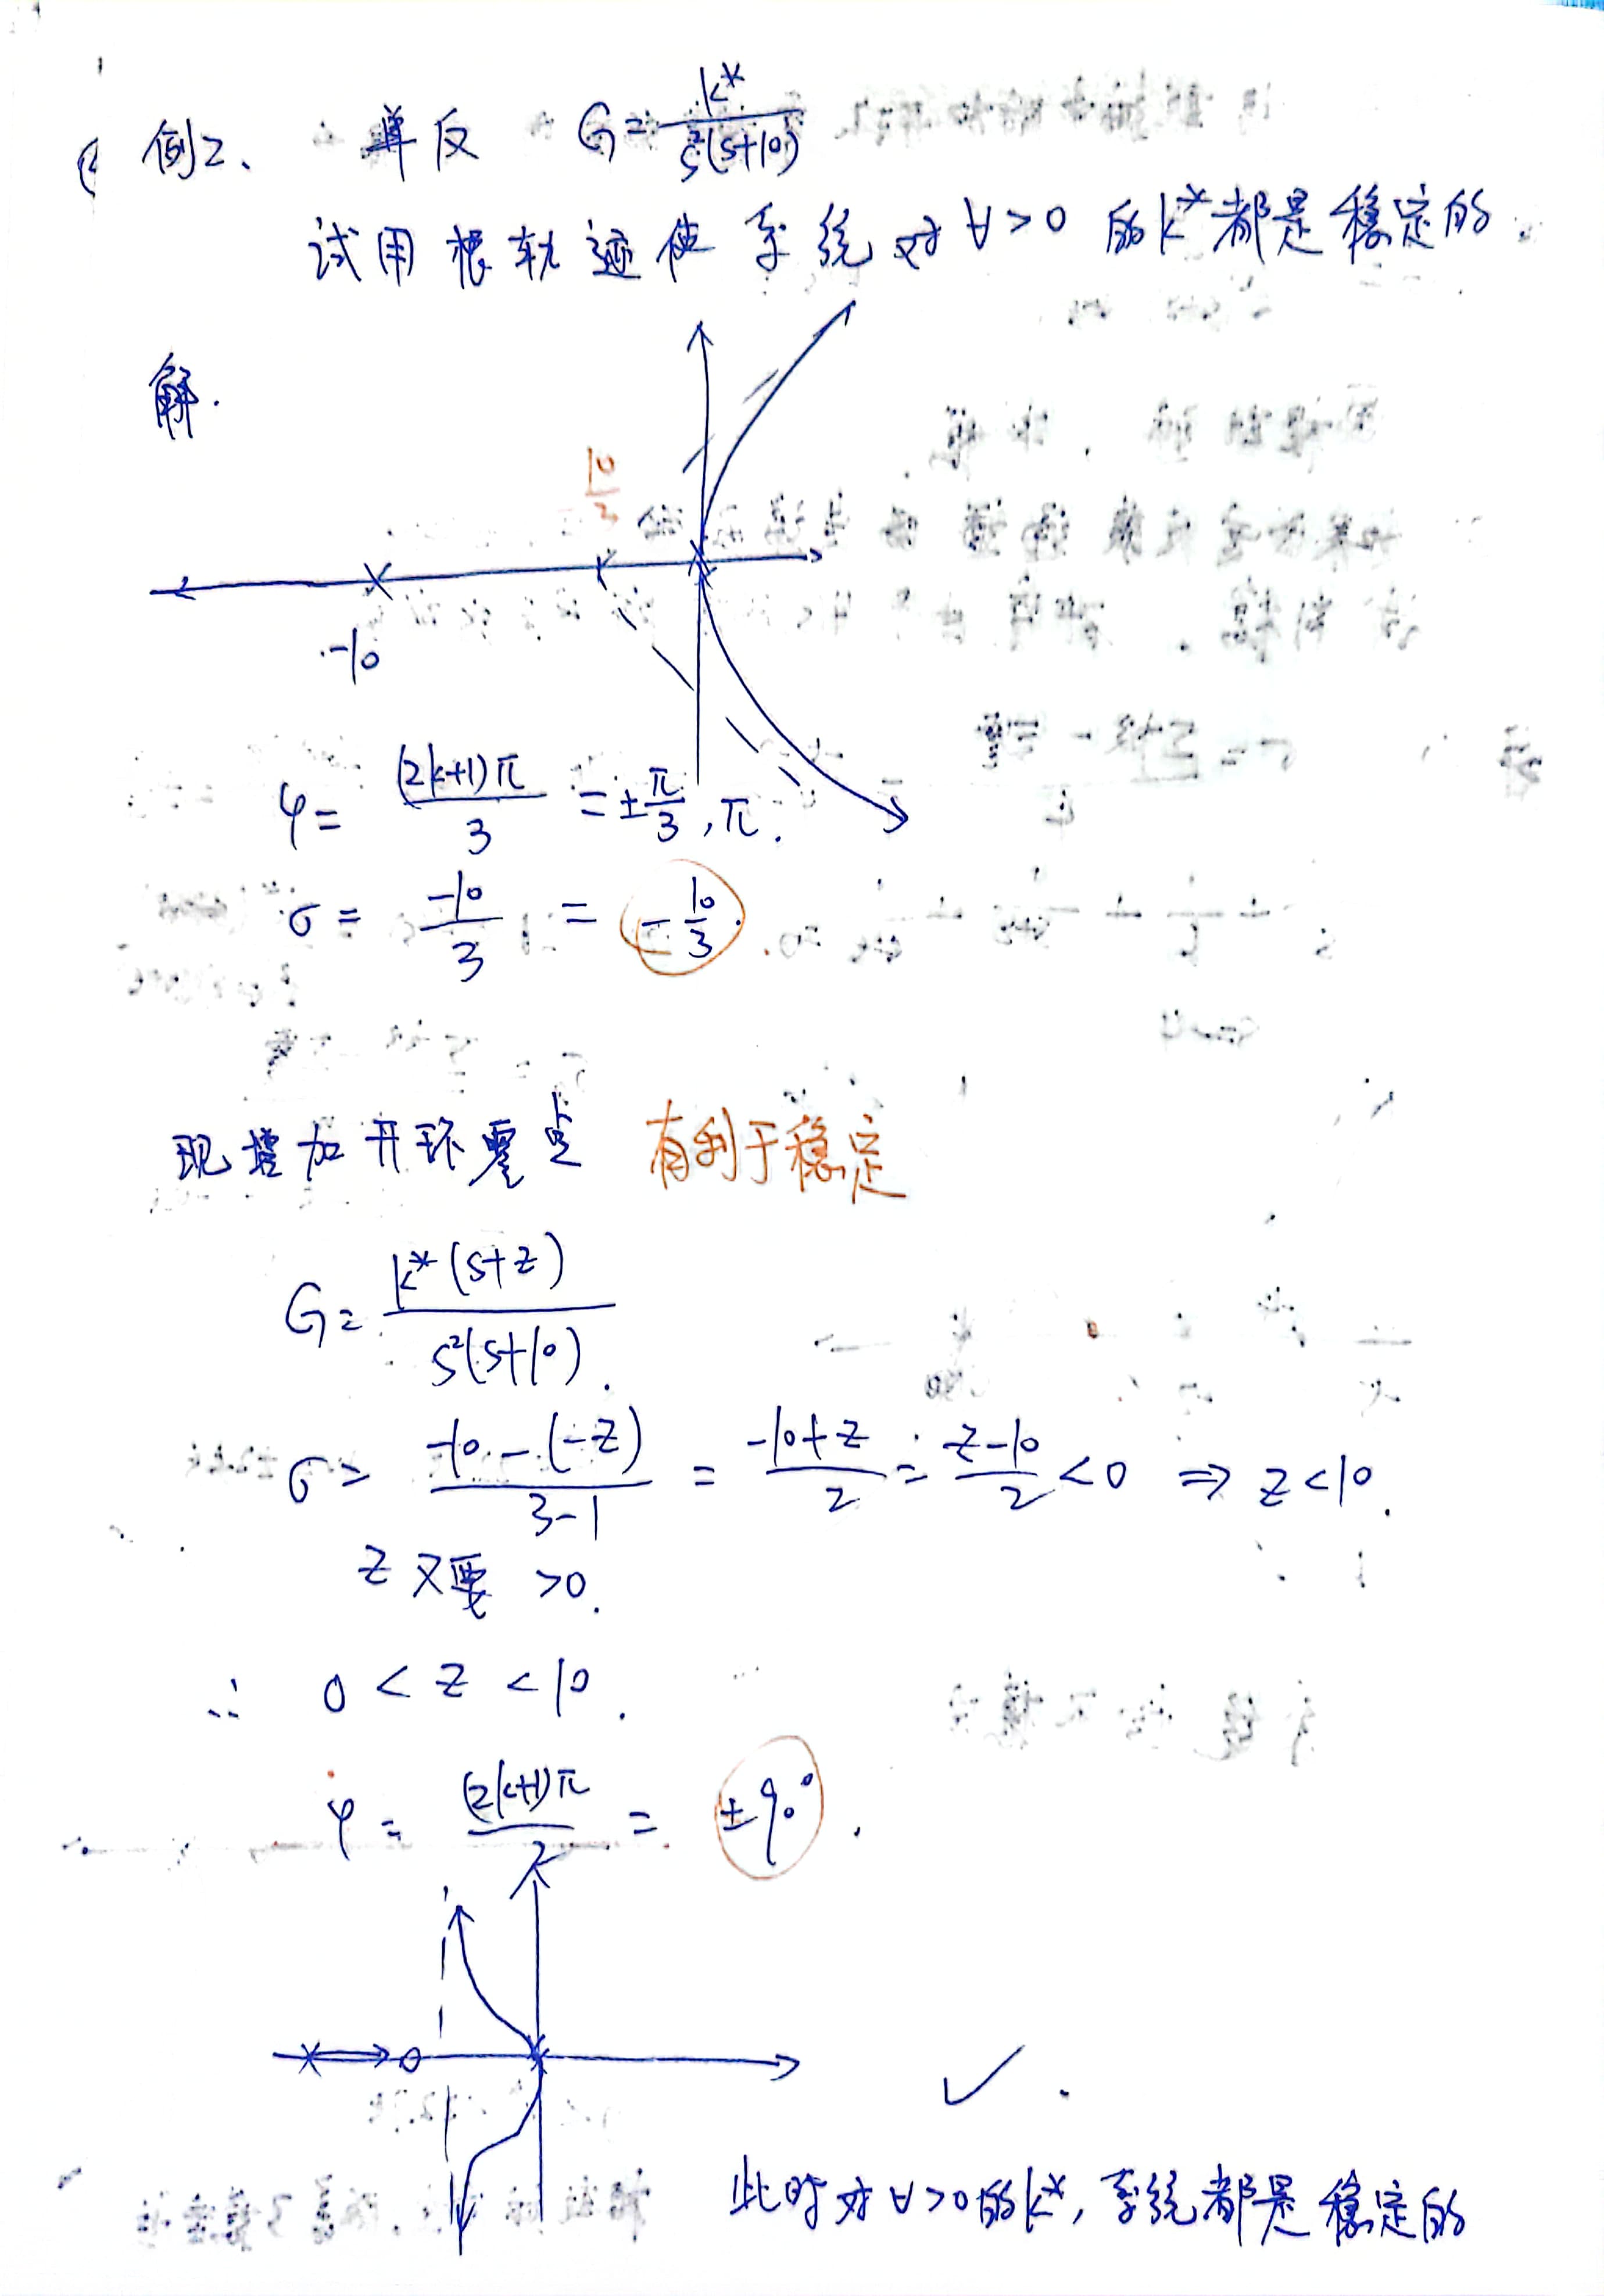 例2、 单反 G=K*/s²(s+10)
试用根轨迹使系统对∀>0的K*都是稳定的.
解.
10/3
-10
φ= (2k+1)π/3 =±π/3,π.
σ= -10/3 = -10/3.
现增加开环零点 有利于稳定
G= K*(s+z)/s²(s+10).
σ= -10-(-z)/3-1 = -10+z/2 = z-10/2 <0 ⇒ z<10.
z又要 >0.
∴ 0<z<10.
φ= (2k+1)π/2 = ±90°.
此时对∀>0的K*,系统都是稳定的